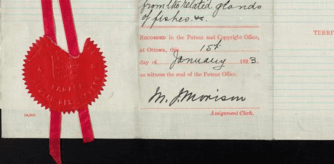 from the related glands
of fishes. &c.
Recorded in the Patent and Copyright Office,
at Ottawa, this 15th
day of January 1923.
as witness the seal of the Patent Office.
M. J. Morison
Assignment Clerk.
TERRI